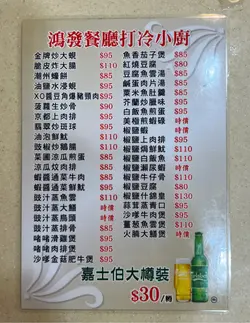 鴻發餐廳打冷小廚
金牌炒大蜆 $95
脆皮炸大腸 $110
潮州蠔餅 $95
油鹽水浸蜆 $95
XO醬豆角爆豬頸肉 $95
菠蘿生炒骨 $90
京都上肉排 $95
翡翠炒斑球 $95
油泡鮮魷 $110
豉椒鵝腸 $110
菜圃涼瓜煎蛋 $85
涼瓜炆肉排 $85
蝦醬通菜牛肉 $85
蝦醬通菜鮮魷 $95
豉汁蒸魚雲 $110
豉汁蒸大鱔 時價
豉汁蒸烏頭 時價
豉汁蒸排骨 $95
啫啫滑雞煲 $95
啫啫肉排煲 $95
沙嗲金菇肥牛煲 $95
魚香茄子煲 $95
紅燒豆腐 $80
豆腐魚雲湯 $95
鹹菜肉片湯 $95
粟米魚肚羹 $95
芥蘭炒臘味 $95
白飯魚煎蛋 $95
美極煎蝦碌 時價
椒鹽蝦 時價
椒鹽上肉排 $95
椒鹽鮮魷 $110
椒鹽白飯魚 $110
椒鹽田雞 $110
椒鹽豆腐 $80
椒鹽什錦皇 $130
蒜茸蒸齋口 $95
沙嗲牛肉煲 $95
薑蔥魚雲煲 $110
火腩大鱔煲 時價
嘉士伯大樽裝
$30/樽